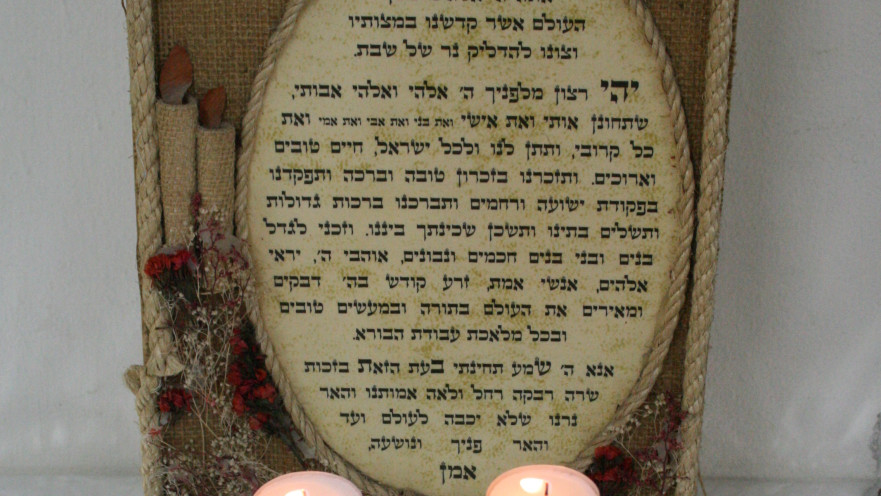 העולם אשר קדשנו במצותיו
וצונו להדליק נר של שבת.
יהי רצון מלפניך ה׳ אלהי ואלהי אבותי,
שתחונן אותי ואת אישי ואת בני ואת אבי ואת אמי ואת
כל קרובי, ותתן לנו ולכל ישראל, חיים טובים
וארוכים. ותזכרנו בזכרון טובה וברכה ותפקדנו
בפקודת ישועה ורחמים ותברכנו ברכות גדולות
ותשלים בתינו ותשכן שכינתך ביננו. וזכני לגדל
בנים ובני בנים חכמים ונבונים, אוהבי ה׳, יראי
אלהים, אנשי אמת, זרע קודש בה׳ דבקים
ומאירים את העולם בתורה ובמעשים טובים
ובכל מלאכת עבודת הבורא.
אנא ה׳ שמע תחינתי בעת הזאת בזכות
שרה רבקה רחל ולאה אמותנו והאר
נרנו שלא יכבה לעולם ועד
והאר פניך ונושעה,
אמן